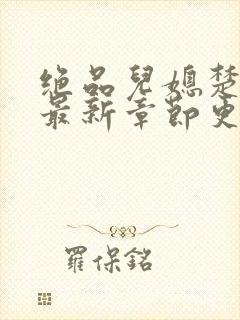 绝品兒媳楚
最新章節更
羅保銘